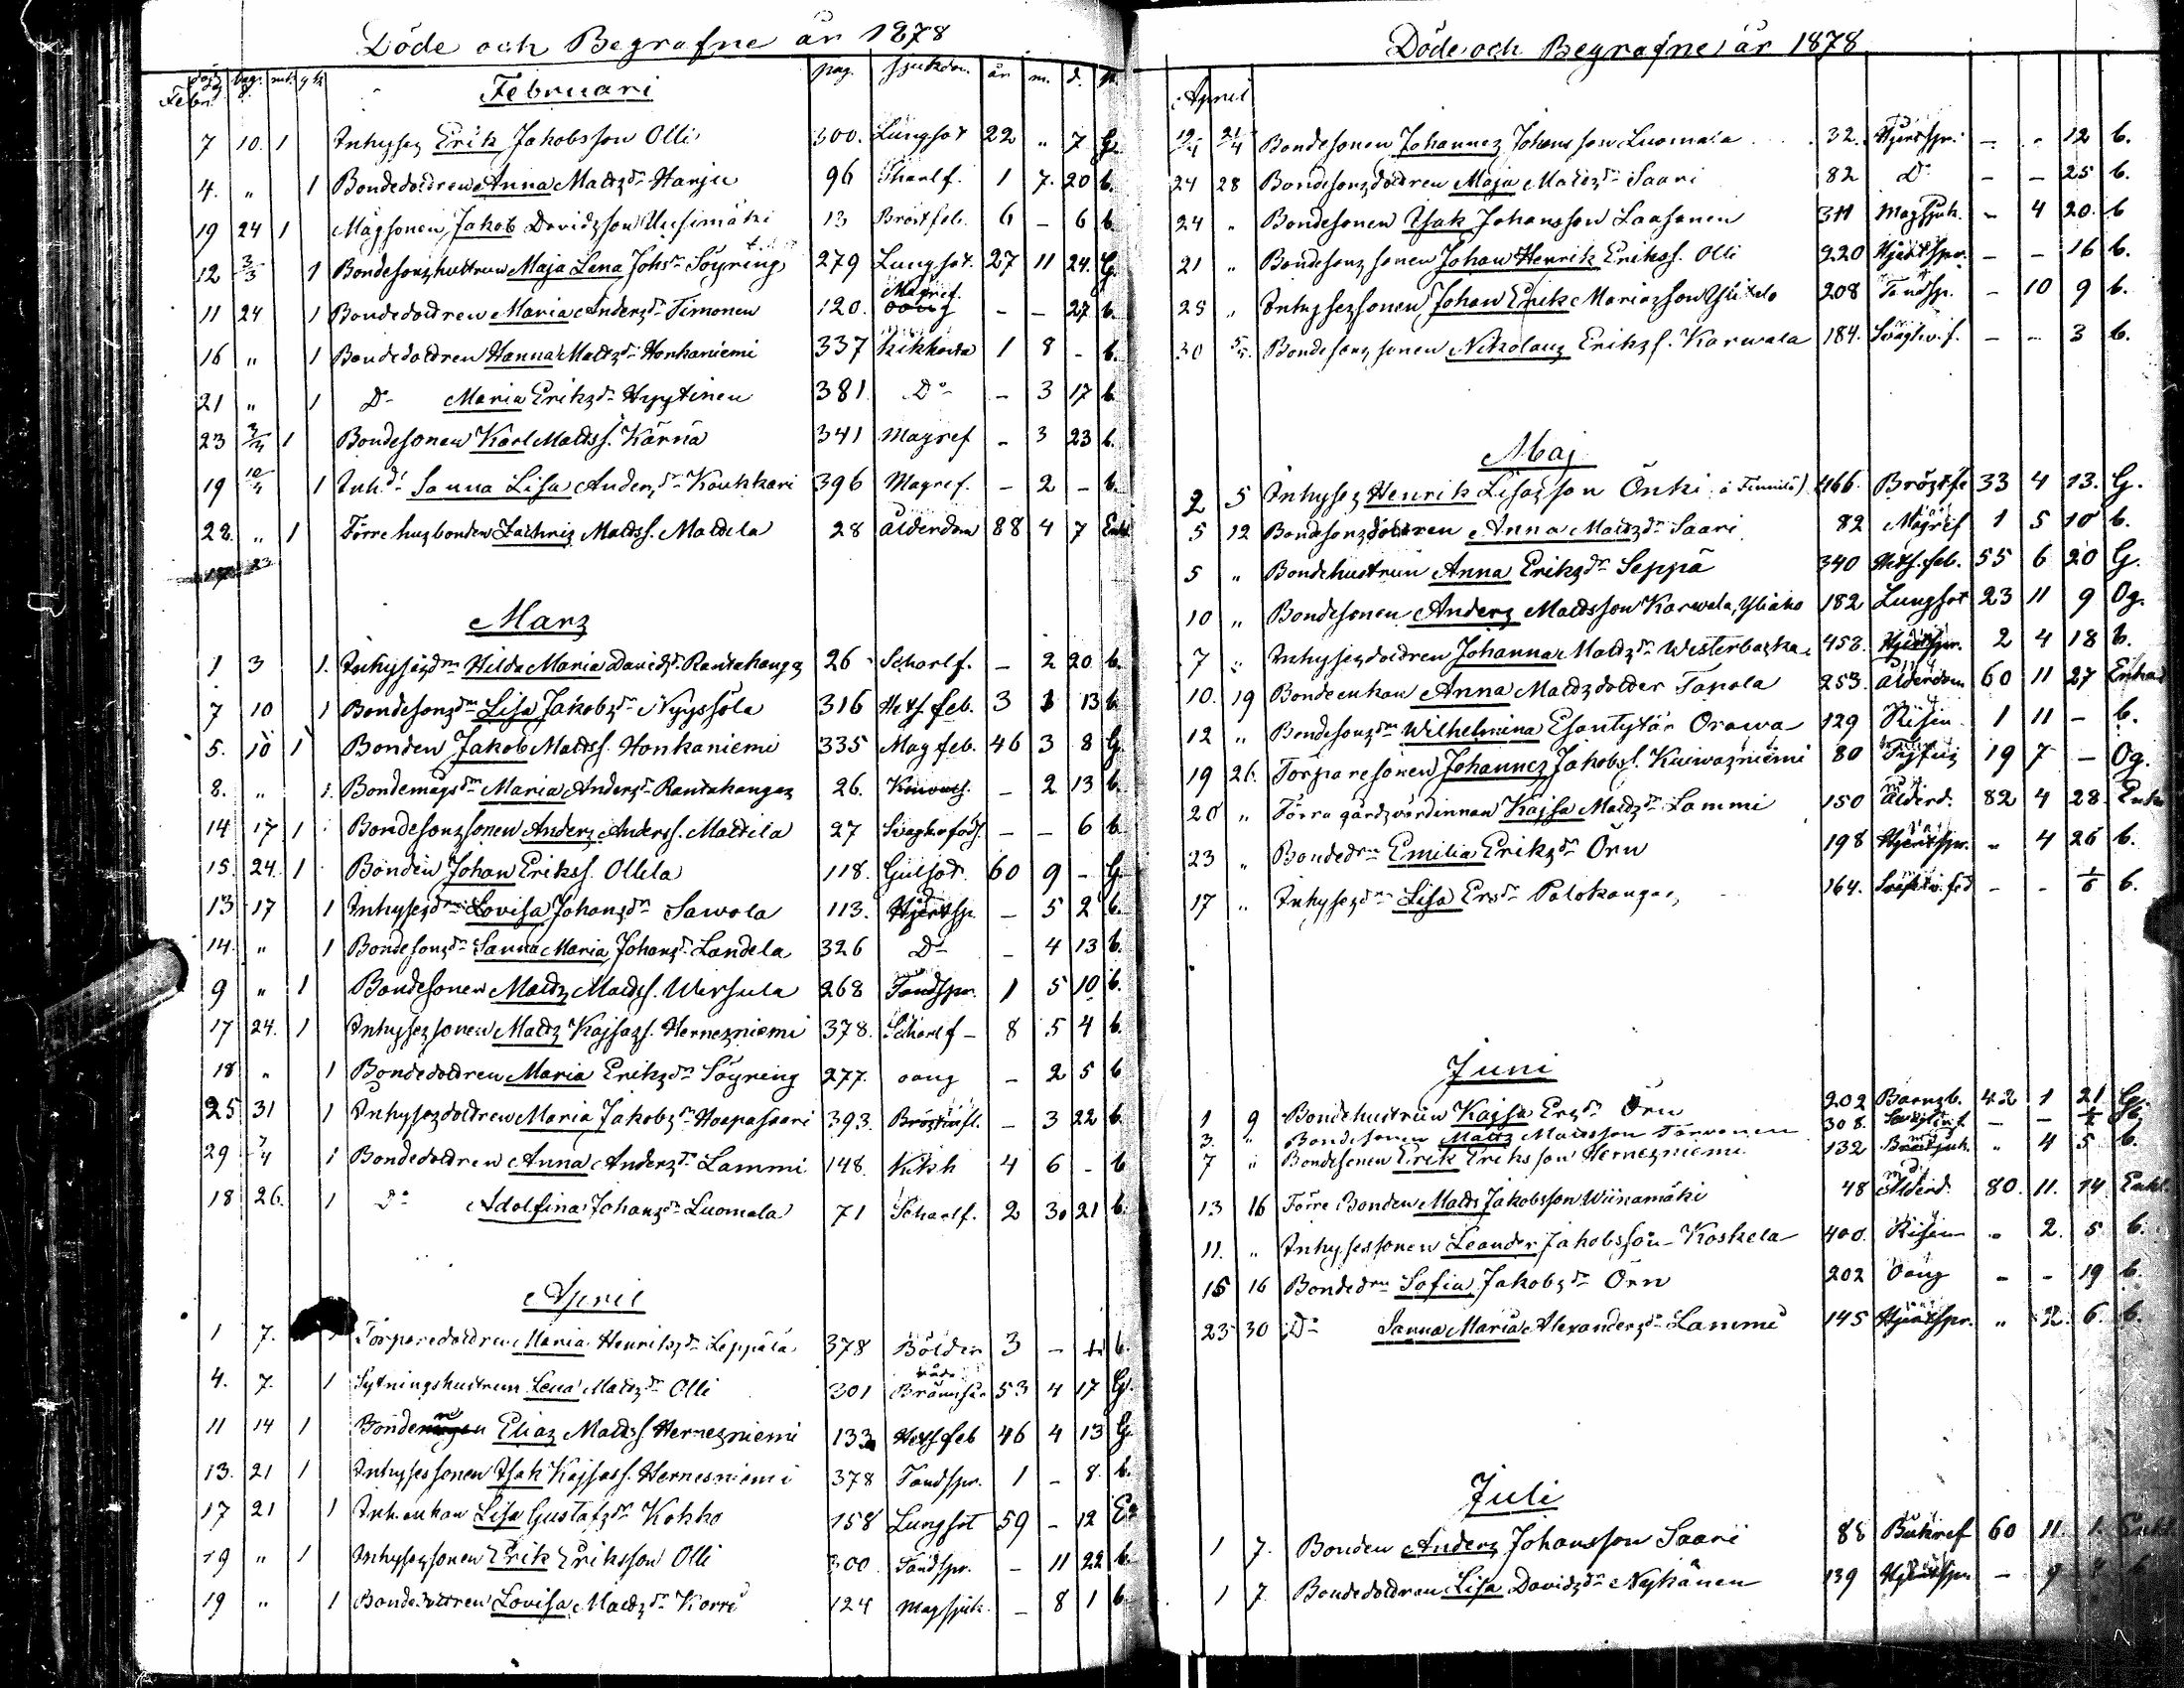 Döde och Begrafne år 1878
död begr. mk. qk pag. sjukdom. år m. d.
Febr. Februari
7 10. 1 Inhyses Erik Jakobsson Olli 300. Lungsot 22 " 7 G.
4. " 1 Bondedottren Anna Mattsdr Harju 96 Scharlf. 1 7. 20 b.
19 24 1 Mågsonen Jakob Davidsson Uusimäki 13 Bröstfeb. 6 - 6 b.
12 3/3 1 Bondesonshustrun Maja Lena Johsdr Söyring 279 Lungsot. 27 11 24. G.
11 24 1 Bondedottren Maria Andersdr Timonen 120. Magref. - - 27 b.
16 " 1 Bondedottren Hanna Mattsdr Honkaniemi 337 Kikhosta 1 8 - b.
21 " 1 Do Maria Eriksdr Hyytinen 381. Do - 3 17 b.
23 3/4 1 Bondesonen Karl Mattss. Kärnä 341 Magref - 3 23 b.
19 10/4 1 Inh.dr Sanna Lisa Andersdr Koukkari 396 Magref. - 2 - b.
22. " 1 Förre husbonden Zachris Mattss. Mattila 28 ålderdom 88 4 7 Enkl
17 23
Mars
1 3 1. Inhysesdrn Hilda Maria Davidsdr Rantakangas 26 Scharlf. - 2 20 b.
7 10 1 Bondesonsdrn Lisa Jakobsdr Nyyssölä 316 Hets. feb. 3 1 13 b.
5. 10 1 Bonden Jakob Mattss. Honkaniemi 335 Magfeb. 46 3 8 G.
8. " 1. Bondemågsdrn Maria Andersdr Rantakangas 26. - 2 13 b.
14 17 1 Bondesonssonen Anders Anderss. Mattila 27 Svagheföds. - - 6 b.
15. 24. 1 Bonden Johan Erikss. Ollila 118. Gulsot. 60 9 - G.
13 17 1 Inhysesdrn Lovisa Johansdr Sawola 113. Hjertsp. - 5 2 b.
14. " 1 Bondesonsdr Sanna Maria Johansdr Landela 326 Do - 4 13 b.
9 " 1 Bondesonen Matts Mattss. Wirsula 268 Tandspr. 1 5 10 b.
17 24. 1 Inhysessonen Matts Kajsass. Hernesniemi 378. Scharlf - 8 5 4 b.
18 " 1 Bondedottren Maria Eriksdr Söyring 277. oang - 2 5 b
25 31 1 Inhysesdottren Maria Jakobsdr Haapasaari 393. Bröstinfl. - 3 22 b.
29 7/4 1 Bondedottren Anna Andersdr Lammi 148. Kikh 4 6 - b
18 26. 1 Do Adolfina Johansdr Luomala 71 Scharlf. 2 30 21 b.
April
1 7. Torparedottren Maria Henriksdr Leppälä 378 Bölder 3 - b.
4. 7. 1 Sytningshustrun Lena Mattsdr Olli 301 53 4 17 G.
11 14 1 Bonden Elias Mattss. Hernesniemi 133 Hetsfeb 46 4 13 G.
13. 21 1 Inhysessonen Isak Kajsass. Hernesniemi 378 Tandspr. 1 - 8. b.
17 21 1 Inh.enkan Lisa Gustafsdr Kokko 158 Lungsot 59 - 12 E.
19 " 1 Inhysessonen Erik Eriksson Olli 300. Tandspr. - 11 22 b.
19 " 1 Bondedottren Lovisa Mattsdr Korri 124 Magsjuk. - 8 1 b.
Döde och Begrafne år 1878
April
19/4 21/4 Bondesonen Johannes Johansson Luomala 32. Hjertspr. - - 12 b.
24 28 Bondesonsdottren Maja Mattsdr Saari 82 Do - - 25 b.
24 " Bondesonen Isak Johansson Laasanen 311 Magsjuk. - 4 20. b
21 " Bondesonssonen Johan Henrik Erikss. Olli 220 Hjertspr. - - 16 b.
25 " Inhysessonen Johan Erik Mariasson Ylitalo 208 Tandsp. - 10 9 b.
30 5/5. Bondesonssonen Nikolaus Erikss. Karwala 184. Svaghv.f. - - 3 b.
Maj
2 5 Inhyses Henrik Lisasson Önki 466. Bröstfe 33 4 13. G.
5 12 Bondesonsdottren Anna Mattsdr Saari 82 Magref 1 5 10 b.
5 " Bondehustrun Anna Eriksdr Seppä 340 Hets.feb. 55 6 20 G.
10 " Bondesonen Anders Mattsson Karwala, Yliaho 182 Lungsot 23 11 9 Og.
7 " Inhysesdottren Johanna Mattsdr Westerbacka 458. Hjertspr. 2 4 18 b.
10. 19 Bondeenkan Anna Mattsdotter Tapola 253. ålderdom 60 11 27 Enka
12 " Bondesonsdrn Wilhelmina Esantytär Orawa 129 Risin 1 11 - b.
19 26. Torparesonen Johannes Jakobss. Kaiwasniemi 80 Tyfus 19 7 - Og.
20 " Förra gårdsvärdinnan Kajsa Mattsdr Lammi 150 ålderd. 82 4 28. Enka
23 " Bondedrn Emilia Eriksdr Örn 198 Hjertspr. " 4 26 b.
17 " Inhysesdrn Lisa Ersdr Palokangas, 164. Svaghv.föd - - 1/6 b.
Juni
1 9 Bondehustrun Kajsa Ersdr Örn 202 Barnsb. 42 1 21 G.
3. " Bondesonen Matts Mattsson Törvonen 308. - - b.
7 " Bondesonen Erik Eriksson Hernesniemi 132 " 4 5 b.
13 16 Förre Bonden Matts Jakobsson Wiinamäki 48 Ålderd. 80. 11. 14 Enkl.
11. " Inhysessonen Leander Jakobsson Koskela 400. Risin " 2. 5 b.
15 16 Bondedrn Sofia Jakobsdr Örn 202 Oang - - 19 b.
23 30 Do Sanna Maria Alexandersdr Lammi 145 Hjertspr. " 2. 6. b.
Juli
1 7. Bonden Anders Johansson Saari 88 Bukref 60 11. 1. Enkl
1 7. Bondedottren Lisa Davidsdr Nykänen 139 Hjertspr - 9